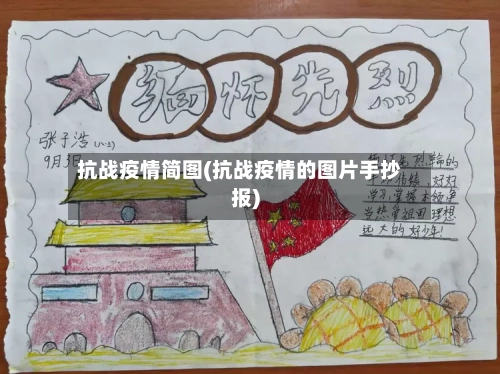 缅怀先烈
张子浩(八.2)
9月3日
抗战疫情简图(抗战疫情的图片手抄
报)
先烈
好好
学习,掌握本领,争
当热爱祖国 理想
远大的好少年!